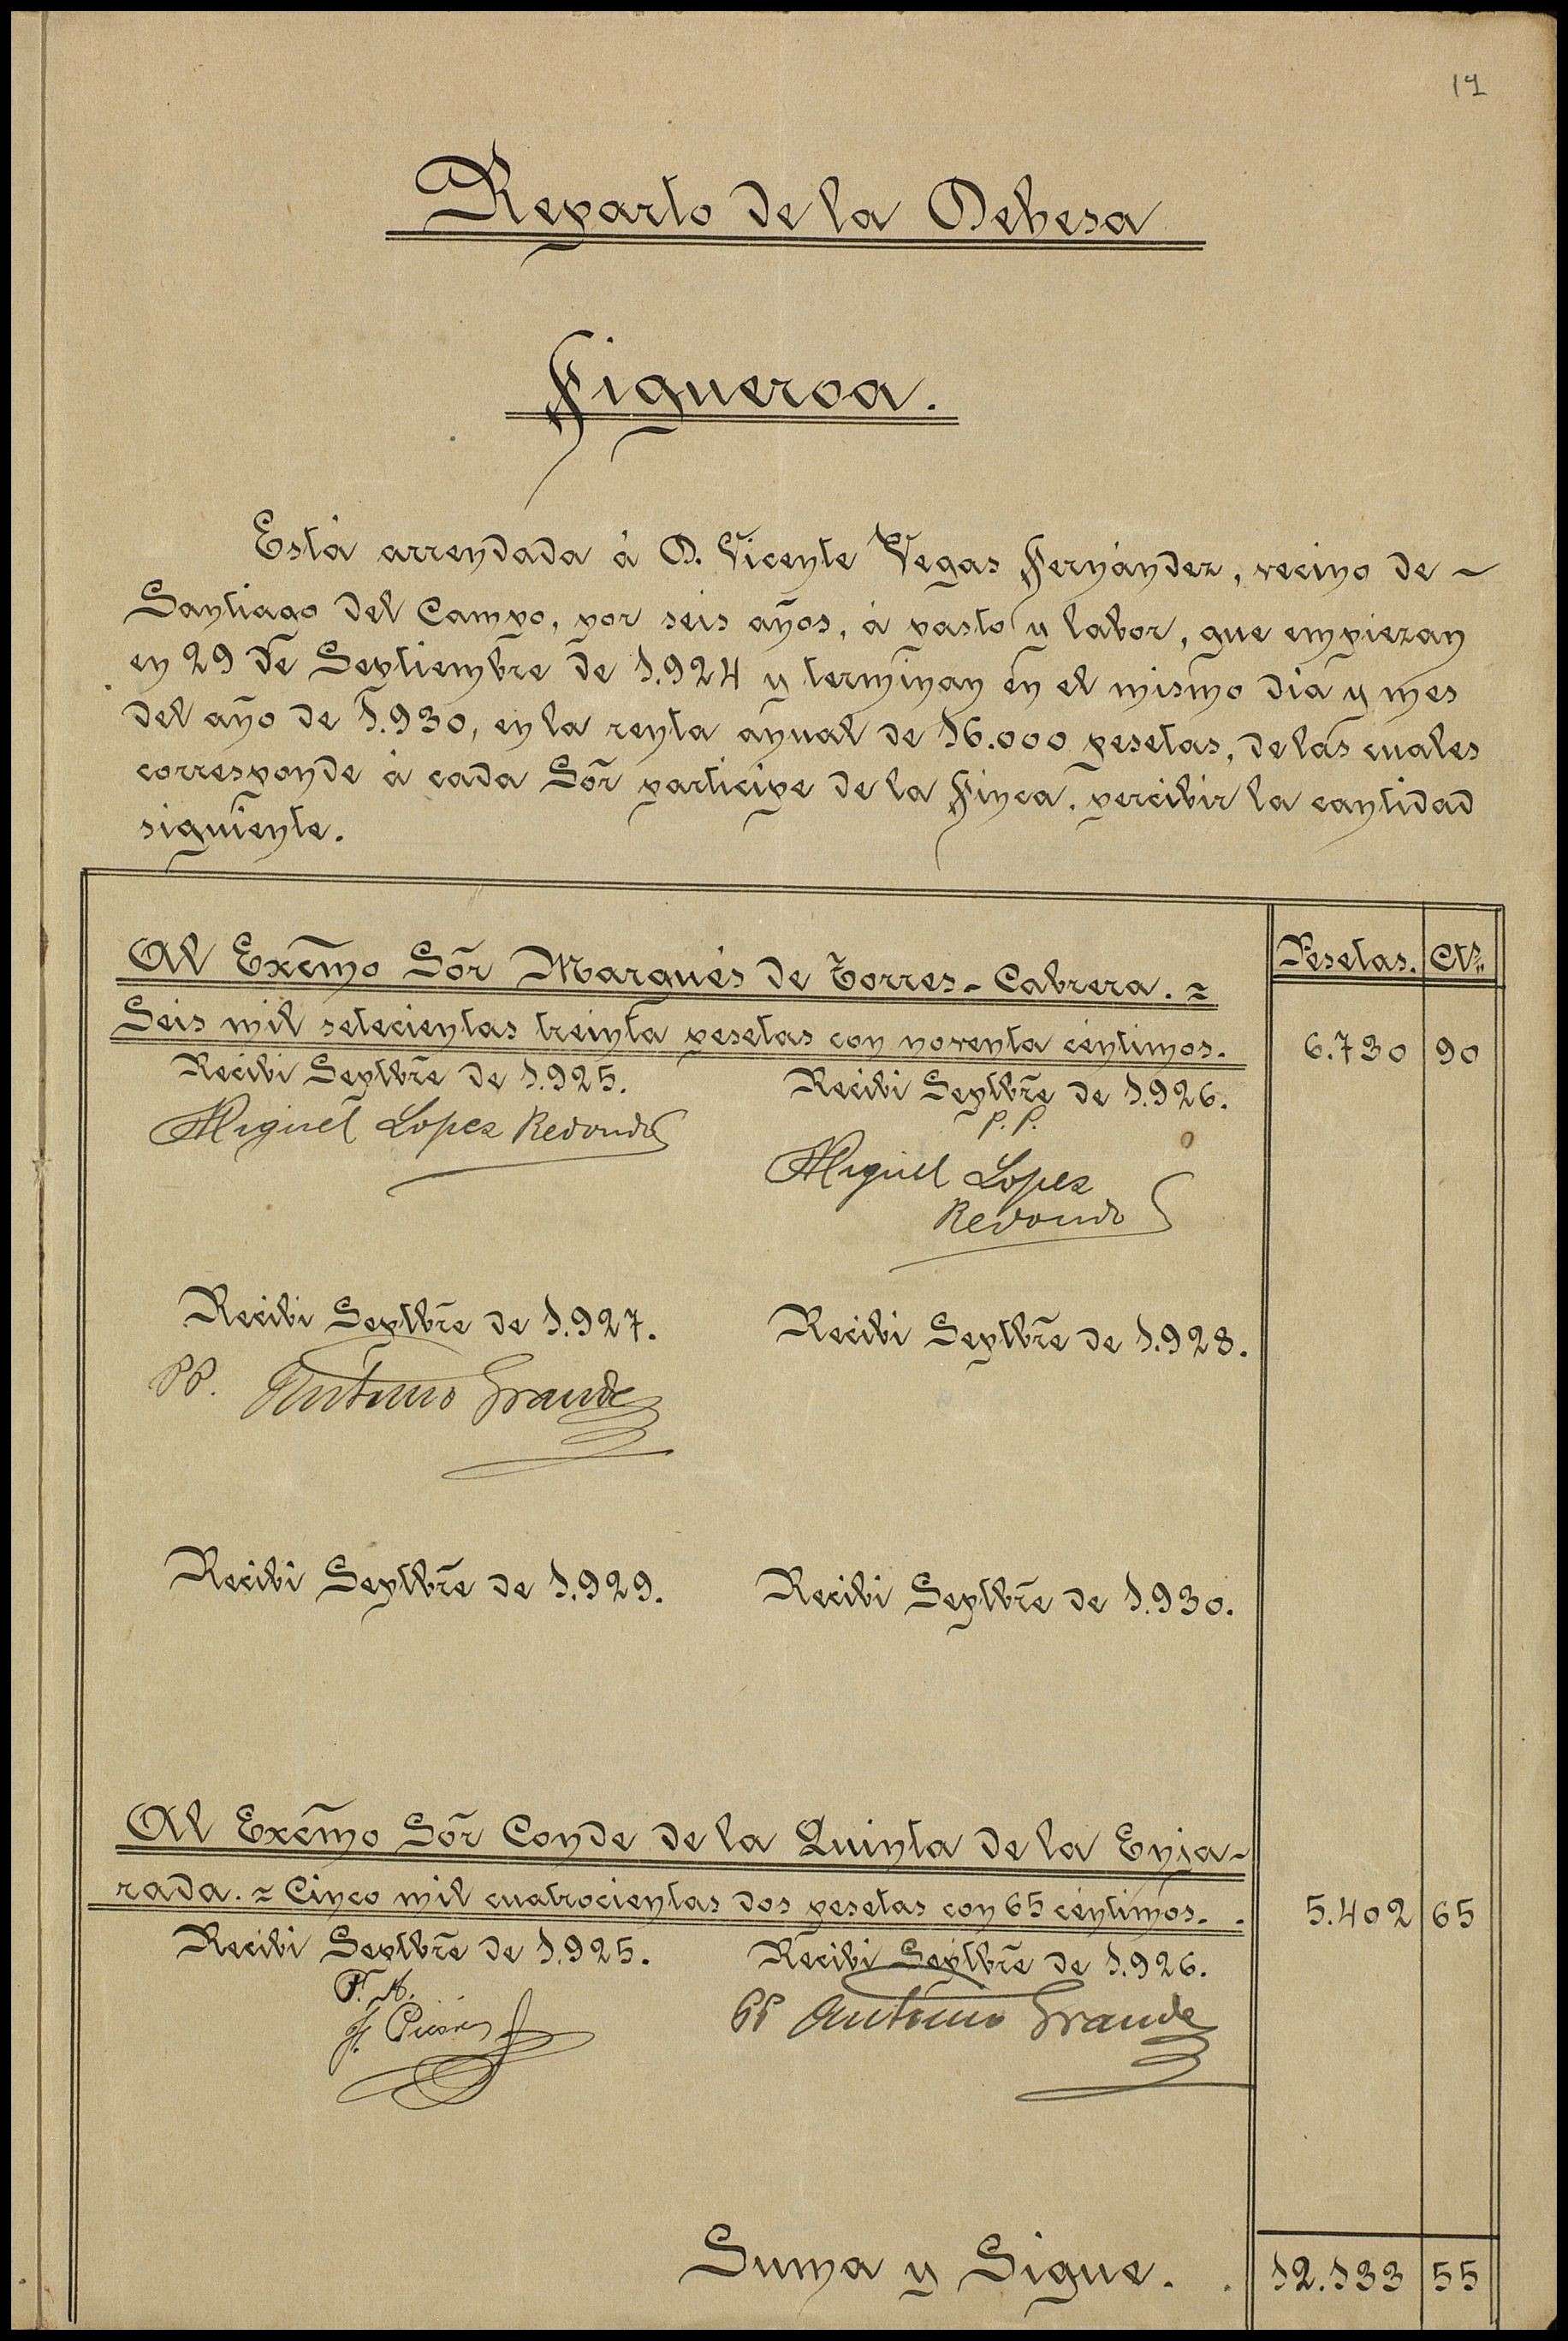 17
Reparto de la Dehesa
Figueroa.
Está arrendada á D. Vicente Vegas Fernández, vecino de ~
Santiago del Campo, por seis años, á pasto y labor, que empiezan
en 29 de Septiembre de 1.924 y terminan en el mismo dia y mes
del año de 1.930, en la renta anual de 16.000 pesetas, de las cuales
corresponde á cada Sõr participe de la Finca, percibir la cantidad
siguiente.
Pesetas. Cts.
Al Excmo Sõr Marqués de Torres-Cabrera. =
Seis mil setecientas treinta pesetas con noventa céntimos. 6.730 90
Recibi Septbre de 1.925. Recibi Septbre de 1.926.
Miguel Lopez Redondo P.P.
Miguel Lopez
Redondo
Recibi Septbre de 1.927. Recibi Septbre de 1.928.
PP. Antonio Grande
Recibi Septbre de 1.929. Recibi Septbre de 1.930.
Al Excmo Sõr Conde de la Quinta de la Enja-
rada. = Cinco mil cuatrocientas dos pesetas con 65 céntimos. . 5.402 65
Recibi Septbre de 1.925. Recibi Septbre de 1.926.
P. A.
PP Antonio Grande
Suma y Sigue. . 12.133 55